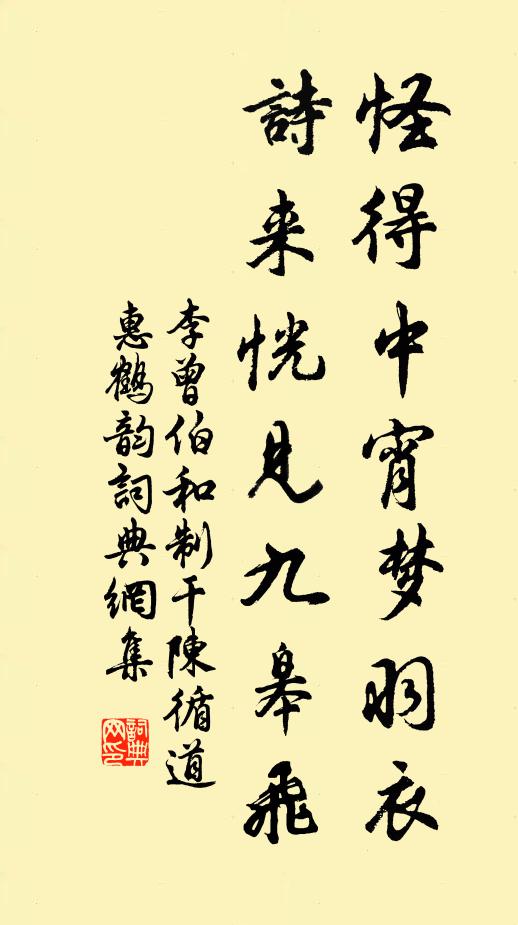 怪得中宵梦羽衣
詩来恍見九皋飛
李曾伯和制干陳循道
惠鶴韵詞典網集
詞典網印